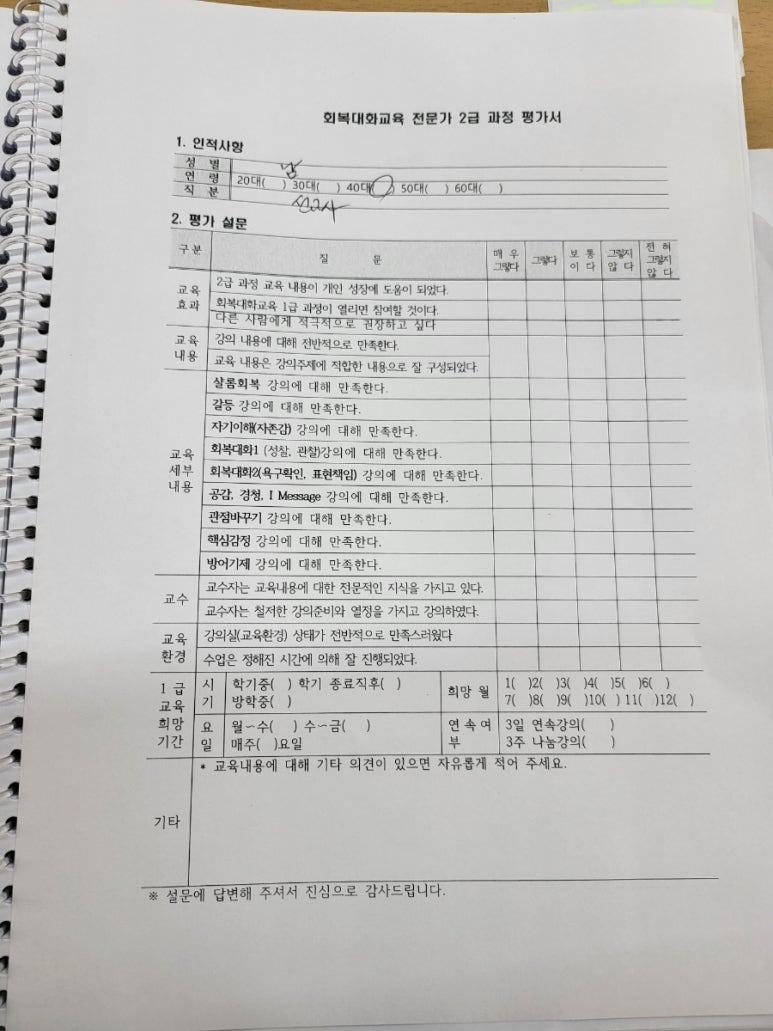 회복대화교육 전문가 2급 과정 평가서
1. 인적사항
성 별 남
연 령 20대( ) 30대( ) 40대( ) 50대( ) 60대( )
직 분 선교사
2. 평가 설문
구분 질 문 매 우 그렇다 그렇다 보 통 이 다 그렇지 않 다 전 혀 그렇지 않 다
교육 효과
2급 과정 교육 내용이 개인 성장에 도움이 되었다.
회복대화교육 1급 과정이 열리면 참여할 것이다.
다른 사람에게 적극적으로 권장하고 싶다
교육 내용
강의 내용에 대해 전반적으로 만족한다.
교육 내용은 강의주제에 적합한 내용으로 잘 구성되었다.
교육 세부 내용
샬롬회복 강의에 대해 만족한다.
갈등 강의에 대해 만족한다.
자기이해(자존감) 강의에 대해 만족한다.
회복대화1 (성찰, 관찰)강의에 대해 만족한다.
회복대화2(욕구확인, 표현책임) 강의에 대해 만족한다.
공감, 경청, I Message 강의에 대해 만족한다.
관점바꾸기 강의에 대해 만족한다.
핵심감정 강의에 대해 만족한다.
방어기제 강의에 대해 만족한다.
교수
교수자는 교육내용에 대한 전문적인 지식을 가지고 있다.
교수자는 철저한 강의준비와 열정을 가지고 강의하였다.
교육 환경
강의실(교육환경) 상태가 전반적으로 만족스러웠다
수업은 정해진 시간에 의해 잘 진행되었다.
1 급 교육 희망 기간
시 기 학기중( ) 학기 종료직후( )
방학중( )
희망 월 1( )2( )3( )4( )5( )6( )
7( )8( )9( )10( ) 11( )12( )
요 일 월～수( ) 수～금( )
매주( )요일
연 속 여 부 3일 연속강의( )
3주 나눔강의( )
기타
* 교육내용에 대해 기타 의견이 있으면 자유롭게 적어 주세요.
※ 설문에 답변해 주셔서 진심으로 감사드립니다.